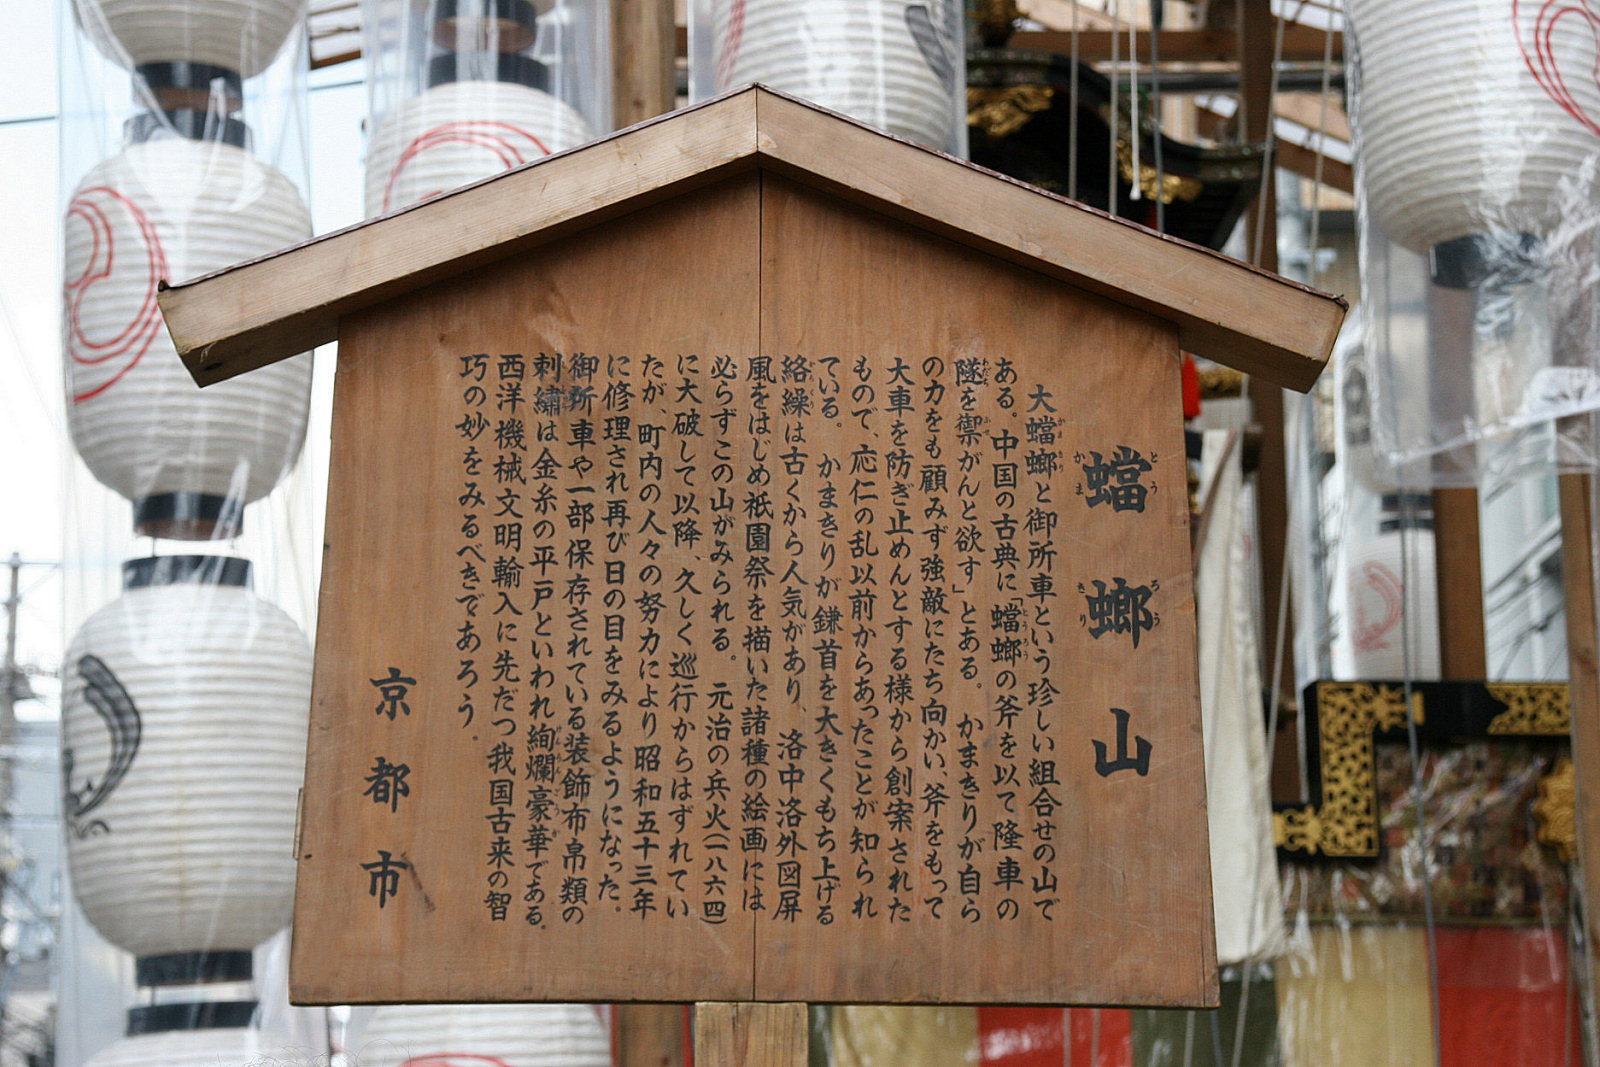 蟷螂山
大蟷螂と御所車という珍しい組合せの山で
ある。中国の古典に「蟷螂の斧を以て隆車の
隧を禦がんと欲す」とある。かまきりが自ら
の力をも顧みず強敵にたち向かい、斧をもって
大車を防ぎ止めんとする様から創案された
もので、応仁の乱以前からあったことが知られ
ている。かまきりが鎌首を大きくもち上げる
絡繰は古くから人気があり、洛中洛外図屏
風をはじめ祇園祭を描いた諸種の絵画には
必らずこの山がみられる。元治の兵火(一八六四)
に大破して以降、久しく巡行からはずれてい
たが、町内の人々の努力により昭和五十三年
に修理され再び日の目をみるようになった。
御所車や一部保存されている装飾布帛類の
刺繡は金糸の平戸といわれ絢爛豪華である。
西洋機械文明輸入に先だつ我国古来の智
巧の妙をみるべきであろう。
京都市